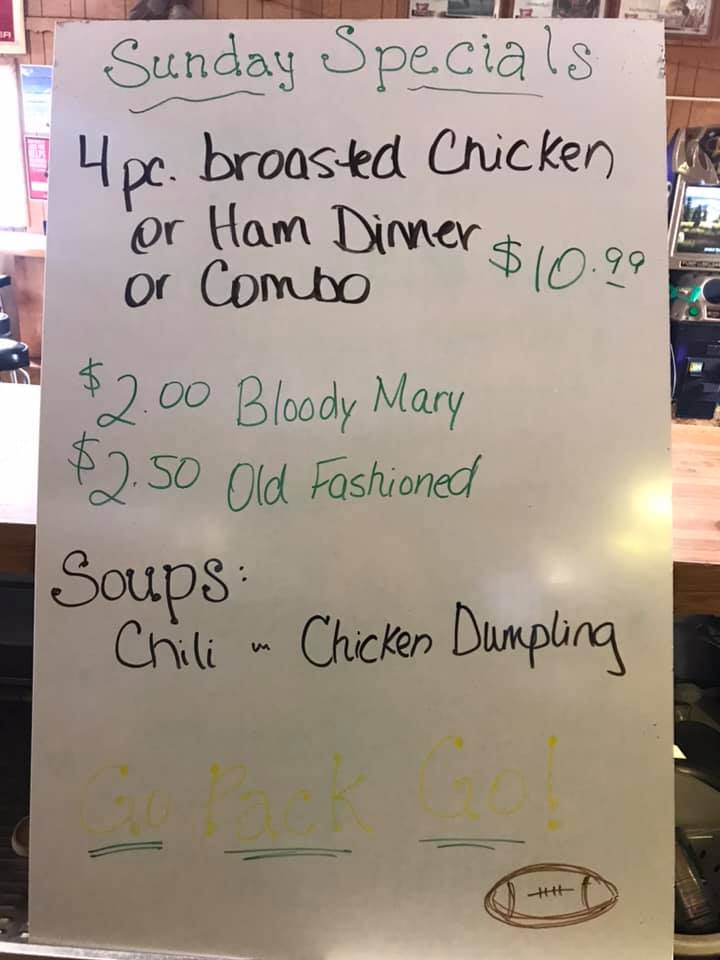 Sunday Specials
4 pc. broasted Chicken
or Ham Dinner
or Combo $10.99
$2.00 Bloody Mary
$2.50 Old Fashioned
Soups:
Chili ~ Chicken Dumpling
Go Pack Go!